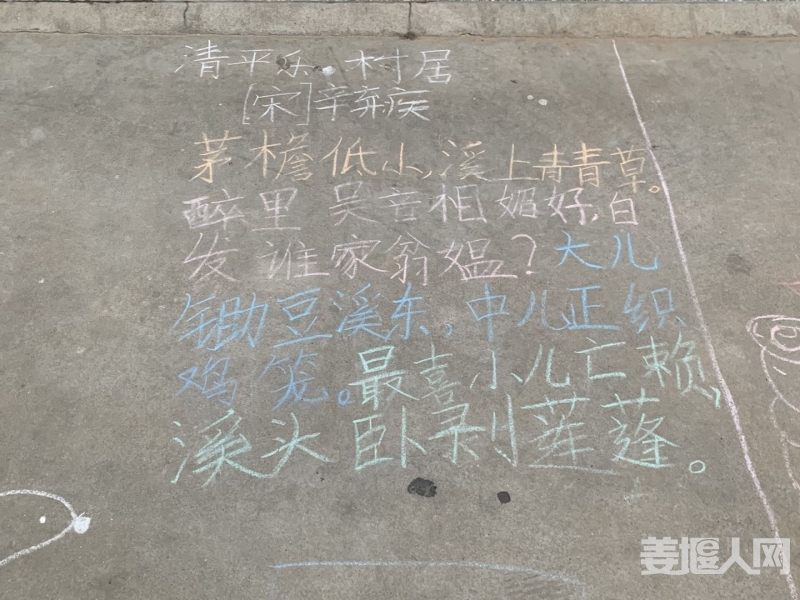 清平乐·村居
[宋]辛弃疾
茅檐低小,溪上青青草。
醉里吴音相媚好,白
发谁家翁媪?大儿
锄豆溪东,中儿正织
鸡笼。最喜小儿亡赖,
溪头卧剥莲蓬。
姜堰人网